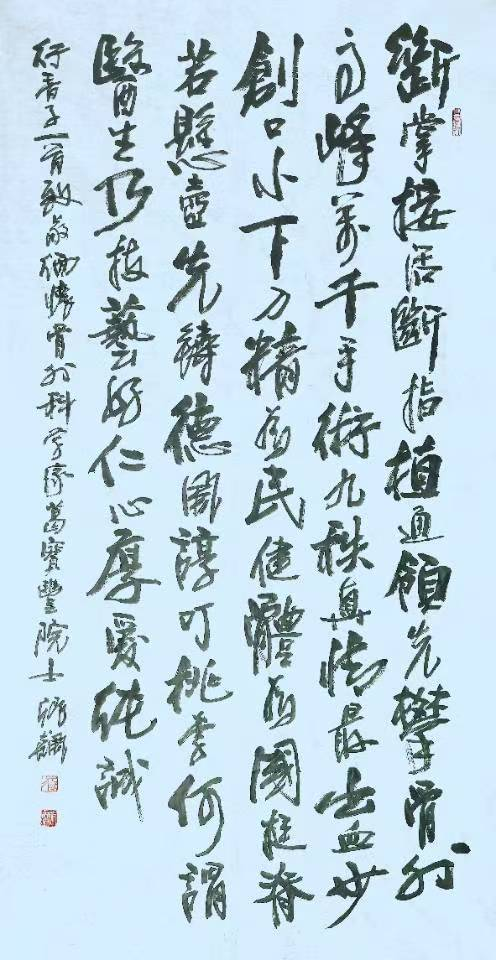 斷掌接活斷指植通領先攀骨外
高峰萬千手術九秩情最出血少
創口小下刀精為民健體為國挺脊
若懸壺先鑄德諄叮桃李何謂
醫生乃技藝好仁心厚愛純誠
行香子一首致敬緬懷骨外科學家葛寶豐院士